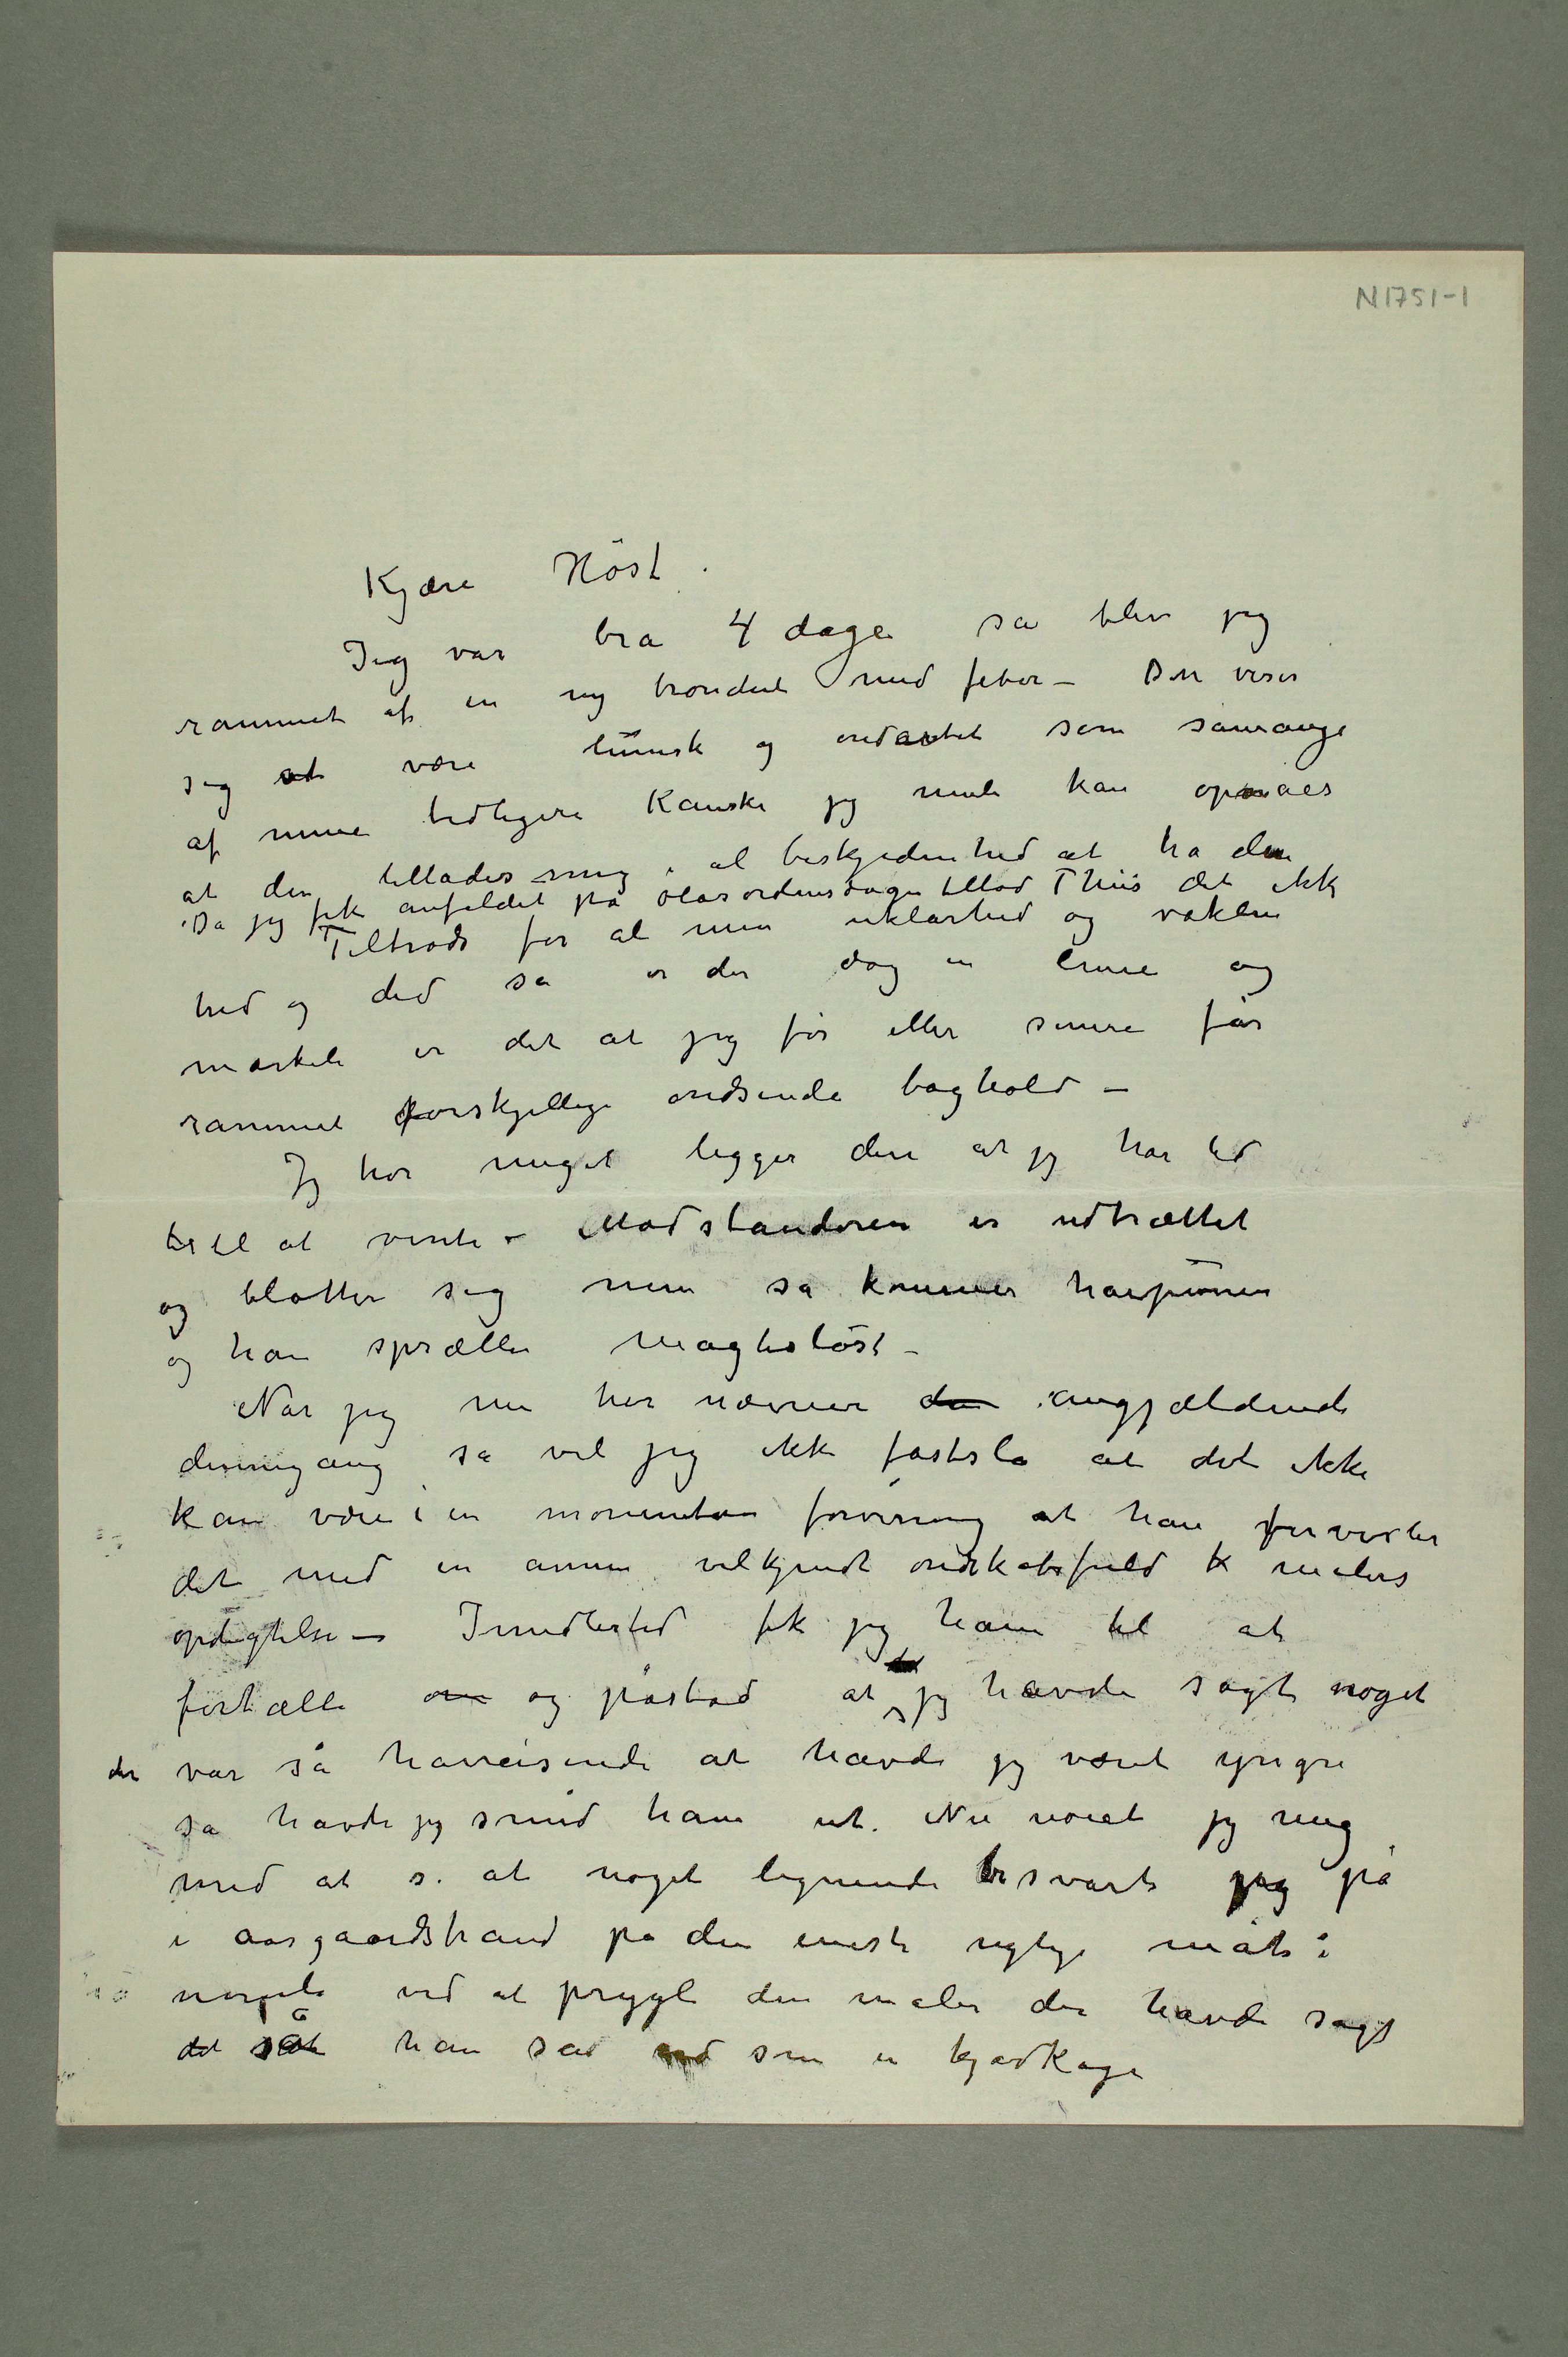 N 1751-1
Kjære Höst.
Jeg var bra 4 dage så blev jeg
rammet af en ny bronchit med feber – Den viser
sig at være lumsk og ondartet som såmange
af mine tidligere Kanske jeg kan opnaes
at den tillades mig i al beskjedenhed at ha den
Da jeg fik anfaldet på olasordensdagen tillod Thiis det ikke
Tiltrods for al min uklarhed og vaklen
hid og did så er der dog en linie og
mærkeli er det at jeg før eller senere får
rammet forskjellige ondsinde baghold –
Jeg tror meget ligger deri at jeg har tid
till at vente – Modstanderen er udtrættet
og blotter sig men så kommer harpunen
og han spræller magtesløst –
Når jeg nu her nævner den angjældende
dennegang så vil jeg ikke fastslå at det ikke
kan være i en momentan forvirring at han forvexler
det med en annen velkjendt ondskabsfuld k malers
opdigtelse – Imidlertid fik jeg ham til at
fortælle om og påstod at jeg havde sagt noget
der var så hårreisende at havde jeg været yngre
så havde jeg smid ham ut. Nu nøiet jeg mig
med at s. at noget lignende besvarte jeg på
i aasgaardstrand på den eneste rigtige måte:
nemli ved at prygle den maler der havde sagt
det så han så ud som en kjødkage